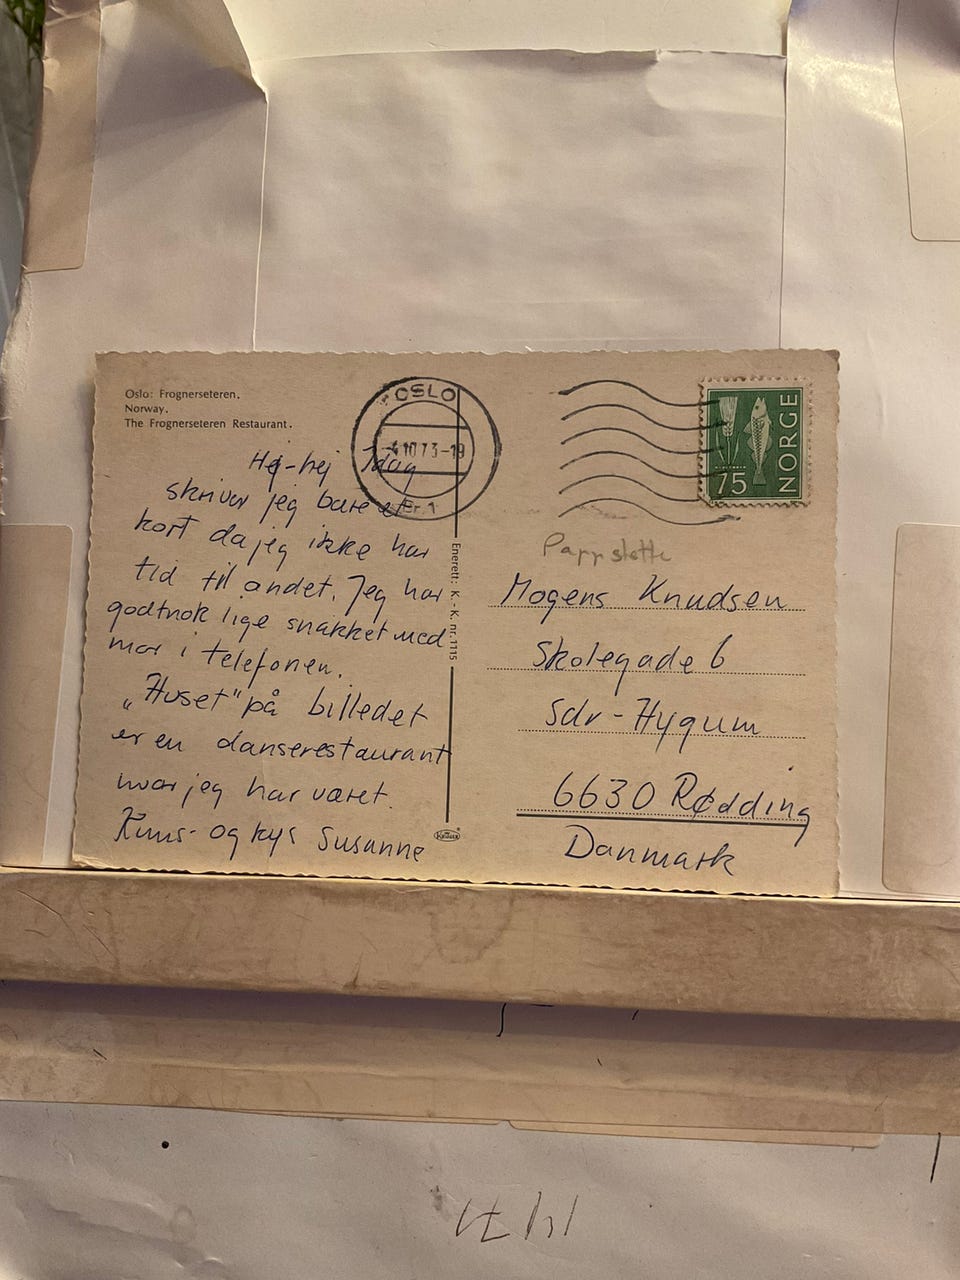 Oslo: Frognerseteren.
Norway.
The Frognerseteren Restaurant.
OSLO
-4.10.73-19
Br. 1
NORGE
75
Hej-hej Idag
skriver jeg bare et
kort da jeg ikke har
tid til andet. Jeg har
godtnok lige snakket med
mor i telefonen.
„Huset" på billedet
er en danserestaurant
hvor jeg har været.
Knus- og kys Susanne
Enerett: K.-K. nr. 1115
Mogens Knudsen
Skolegade 6
Sdr-Hygum
6630 Rødding
Danmark